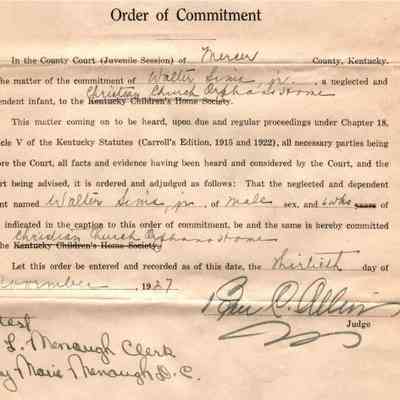 Order of Commitment
In the County Court (Juvenile Session) of Mercer County, Kentucky.
he matter of the commitment of Walter Sims, jr. a neglected and
Christian Church Orphans Home
endent infant, to the Kentucky Children's Home Society.
This matter coming on to be heard, upon due and regular proceedings under Chapter 18,
icle V of the Kentucky Statutes (Carroll's Edition, 1915 and 1922), all necessary parties being
ore the Court, all facts and evidence having been heard and considered by the Court, and the
rt being advised, it is ordered and adjudged as follows: That the neglected and dependent
nt named Walter Sims, jr. of male sex, and 6 wks years of
indicated in the caption to this order of commitment, be and the same is hereby committed
Christian Church Orphans Home
he Kentucky Children's Home Society.
Let this order be entered and recorded as of this date, the thirtieth day of
november 1927
Ben C. Allin
Judge
test
L. Menaugh Clerk
y Marie Menaugh D. C.